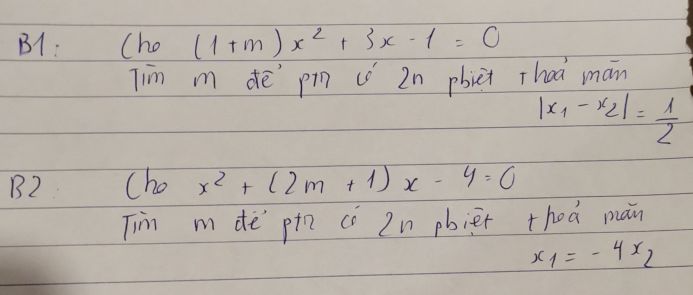 B1: Cho (1+m)x² + 3x - 1 = 0
Tìm m để ptr có 2n pbiệt thoả mãn
|x₁ - x₂| = 1/2
B2: Cho x² + (2m + 1)x - 4 = 0
Tìm m để ptr có 2n pbiệt thoả mãn
x₁ = - 4x₂